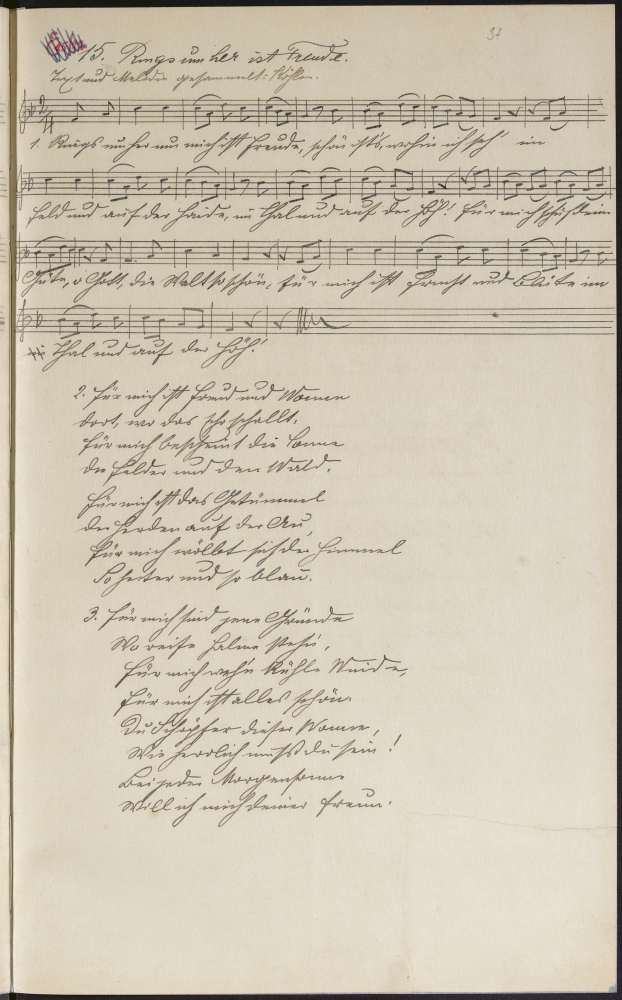 37
15. Rings um her ist Freude.
Text und Melodie gesammelt:
1. Rings um her um mich ist Freude, schön ist's, wohin ich seh' im
Feld und auf der Haide, im Thal und auf der Höh! Für mich ist
Güte, o Gott, die Welt so schön, für mich ist Frucht und Blüte im
Thal und auf der Höh!
2. Für mich ist Freud und Wonne
dort, wo das schallt,
Für mich bescheint die Sonne
die Felder und den Wald.
Für mich ist das Getümmel
der Herden auf der Au,
Für mich wölbt sich der Himmel
So heiter und so blau.
3. Für mich sind jene Gründe
Wo reife Halme stehn,
Für mich wehn kühle Winde,
Für mich ist alles schön.
Du Schöpfer dieser Wonne,
Wie herrlich mußt du sein!
Bei jeder Morgensonne
Will ich mich deiner freun.